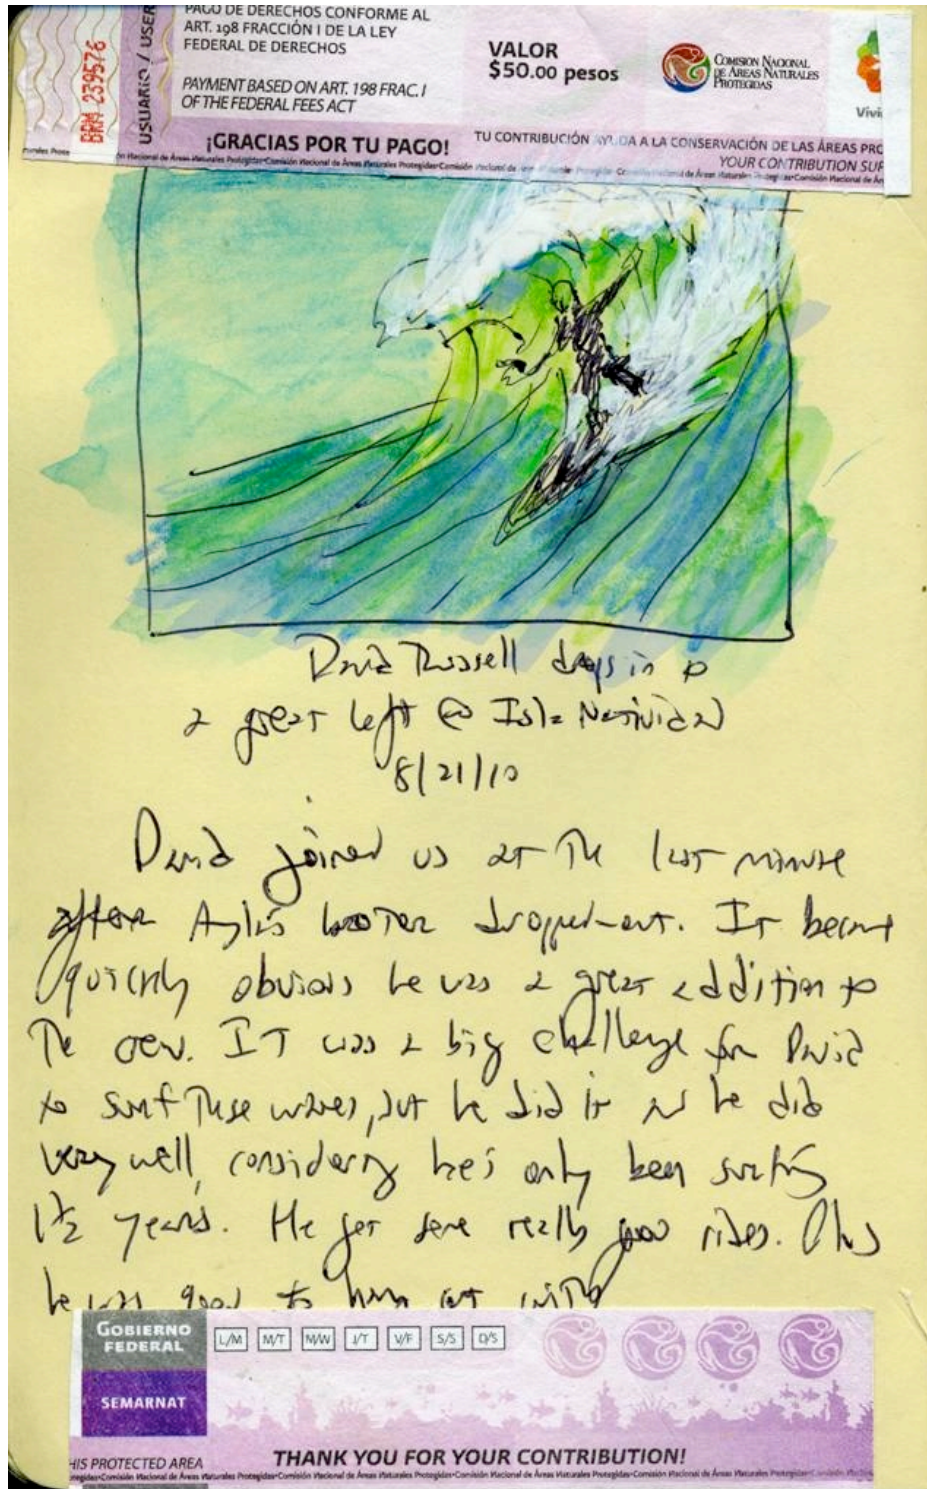 PAGO DE DERECHOS CONFORME AL
ART. 198 FRACCIÓN I DE LA LEY
FEDERAL DE DERECHOS
PAYMENT BASED ON ART. 198 FRAC. I
OF THE FEDERAL FEES ACT
VALOR
$50.00 pesos
COMISIÓN NACIONAL
DE ÁREAS NATURALES
PROTEGIDAS
BRM 239576
USUARIO / USER
¡GRACIAS POR TU PAGO!
TU CONTRIBUCIÓN AYUDA A LA CONSERVACIÓN DE LAS ÁREAS PRO
YOUR CONTRIBUTION SUP
David Russell drops in to
a great left @ Isla Natividad
8/21/10
David joined us at the last minute
after wooter dropped-out. It became
quickly obvious he was a great addition to
the crew. IT was a big challenge for David
to surf these waves, but he did it and he did
very well, considering he's only been surfing
1 1/2 years. He got some really good rides. Plus
he was good to hang out with
GOBIERNO
FEDERAL
SEMARNAT
L/M M/T M/W J/T V/F S/S D/S
HIS PROTECTED AREA
THANK YOU FOR YOUR CONTRIBUTION!